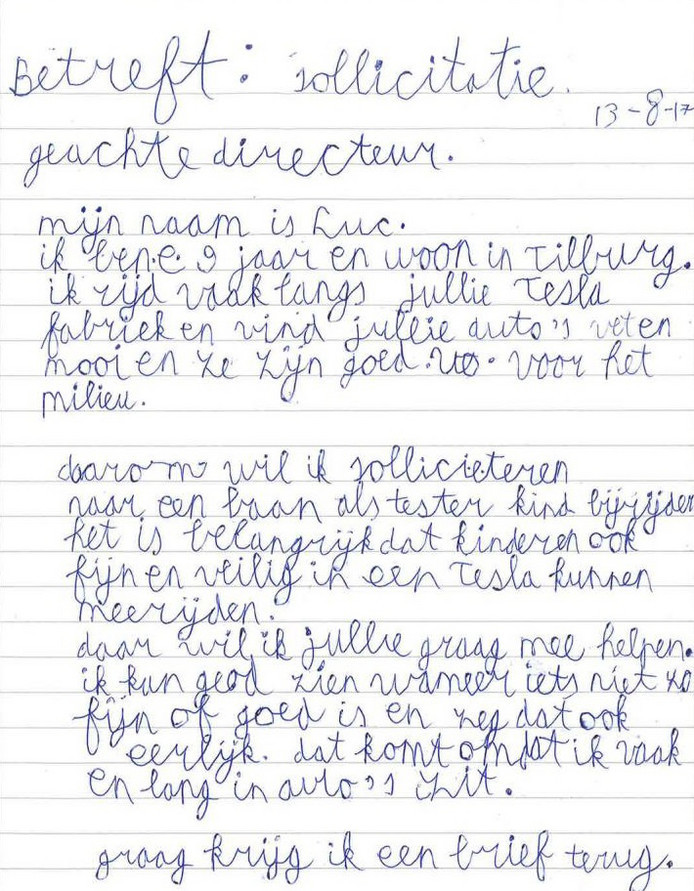 Betreft: sollicitatie.
13-8-17
geachte directeur.
mijn naam is Luc.
ik ben 9 jaar en woon in Tilburg.
ik rijd vaak langs jullie Tesla
fabriek en vind jullie auto's vet en
mooi en ze zijn goed voor het
milieu.
daarom wil ik sollicieteren
naar een baan als tester kind bijrijder
het is belangrijk dat kinderen ook
fijn en veilig in een Tesla kunnen
meerijden.
daar wil ik jullie graag mee helpen.
ik kan goed zien wanneer iets niet zo
fijn of goed is en zeg dat ook
eerlijk. dat komt omdat ik vaak
en lang in auto's zit.
graag krijg ik een brief terug.